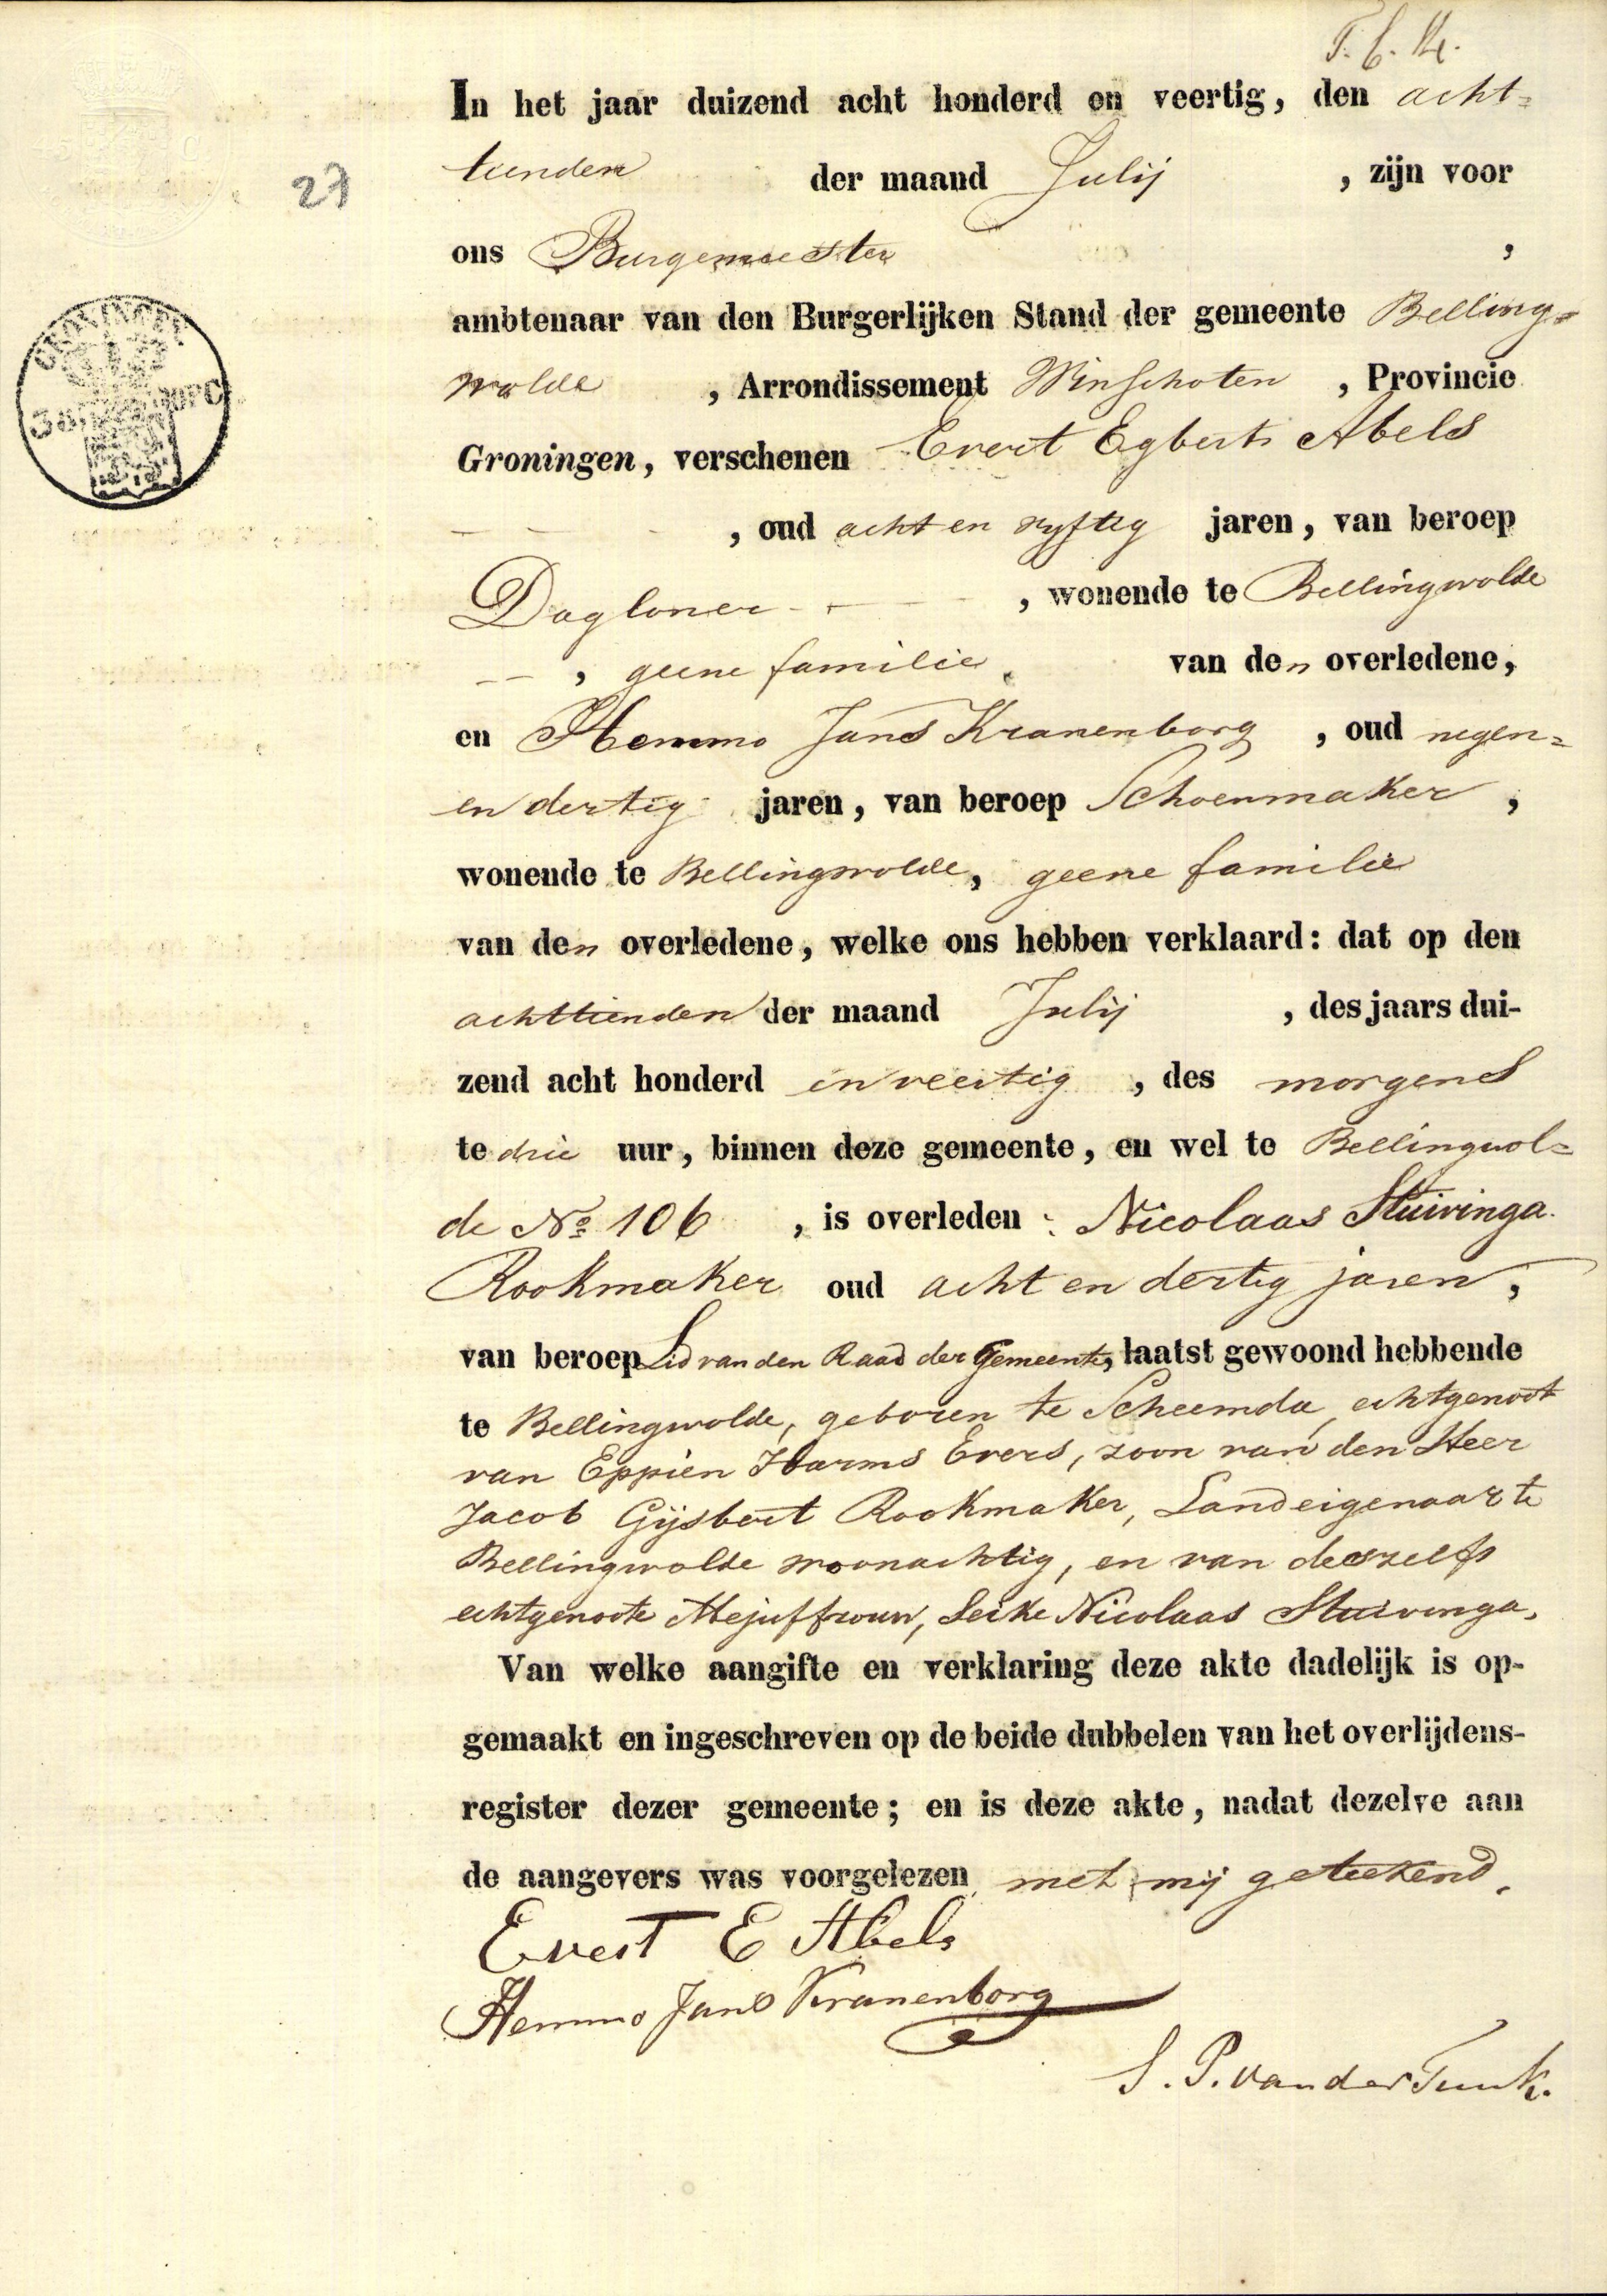 In het jaar duizend acht honderd en veertig, den acht=
27
tienden der maand Julij , zijn voor
ons Burgemeester ,
ambtenaar van den Burgerlijken Stand der gemeente Belling=
wolde , Arrondissement Winschoten , Provincie
GRONINGEN
Groningen, verschenen Evert Egberts Abels
, oud acht en vyftig jaren, van beroep
Dagloner , wonende te Bellingwolde
, geene familie van den overledene,
en Hemmo Jans Kranenborg , oud negen=
en dertig jaren, van beroep Schoenmaker ,
wonende te Bellingwolde, geene familie
van den overledene, welke ons hebben verklaard: dat op den
achttienden der maand Julij , des jaars dui-
zend acht honderd en veertig , des morgens
te drie uur, binnen deze gemeente, en wel te Bellingwol=
de No 106 , is overleden : Nicolaas Stuivinga
Rookmaker oud acht en dertig jaren,
van beroep Lid van den Raad der Gemeente, laatst gewoond hebbende
te Bellingwolde, geboren te Scheemda, echtgenoot
van Eppien Harms Evers, zoon van den Heer
Jacob Gijsbert Rookmaker, Landeigenaar te
Bellingwolde woonachtig, en van deszelfs
echtgenoote Mejuffrouw, Seike Nicolaas Stuivinga.
Van welke aangifte en verklaring deze akte dadelijk is op-
gemaakt en ingeschreven op de beide dubbelen van het overlijdens-
register dezer gemeente; en is deze akte, nadat dezelve aan
de aangevers was voorgelezen met mij geteekend.
Evert E Abels
Hemmo Jans Kranenborg
S. P. van der Tuuk.